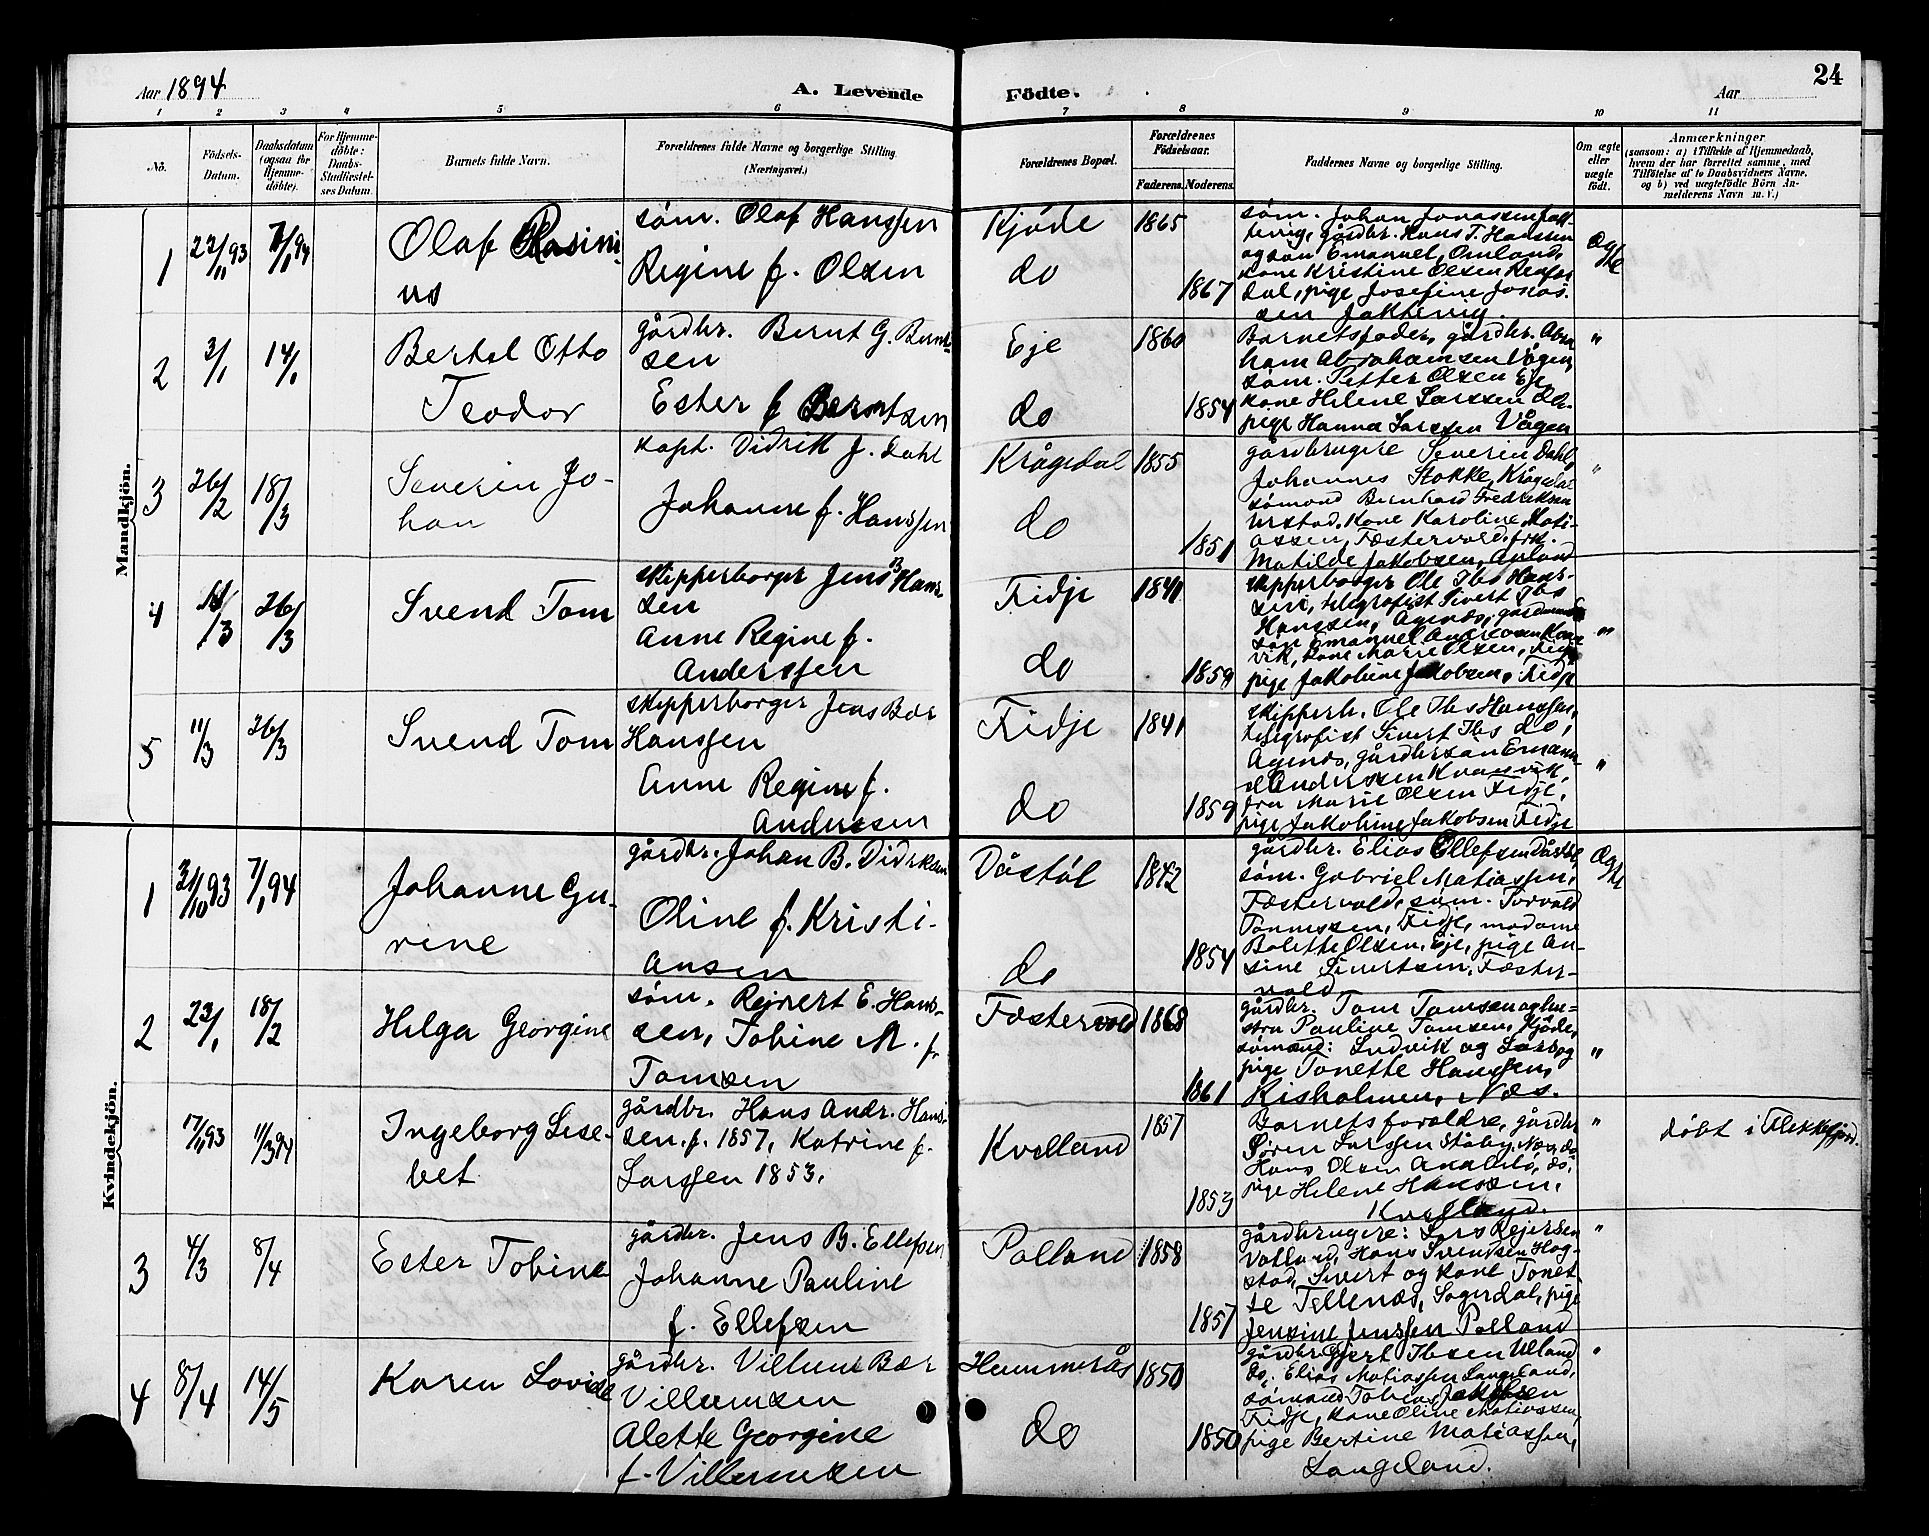 Aar 1894
A. Levende
Födte.
Aar
24
1 2 3 4 5 6 7 8 9 10 11
No.
Födsels-
Datum.
Daabsdatum
(ogsaa for
Hjemme-
døbte).
For Hjemme-
døbte:
Daabs-
Stadfæstel-
ses Datum.
Barnets fulde Navn.
Forældrenes fulde Navne og borgerlige Stilling
(Næringsvei.)
Forældrenes Bopæl.
Forældrenes
Födselsaar.
Faderens. Moderens.
Faddernes Navne og borgerlige Stilling.
Om ægte
eller
uægte
født.
Anmærkninger
(saasom: a) i Tilfælde af Hjemmedaab,
hvem der har forrettet samme, med
Tilföielse af to Daabsvidners Navne,
og b) ved uægtefödte Börn An-
melderens Navn m. V.)
Mandkjön.
1
22/11 93
7/1 94
Olaf Rasini-
us
søm. Olaf Hanssen
Regine f. Olsen
Kjöde
do
1865
1867
søm. Johan Jonassen Jakt-
tevig, gårdbr. Hans T. Hanssen
og søn Emanuel, Omland,
kone Kristine Olsen
dal, pige Josefine Jonas-
sen Jaktevig.
Ægte
2
3/1
14/1
Bertel Otto
Teodor
gårdbr. Bernt G. Bernt-
sen
Ester f Berntsen
Eje
do
1860
1854
Barnets fader, gårdbr. Abra
ham Abrahamsen Vågen,
søm. Petter Olsen Eje,
kone Helene Larssen do.
pige Hanna Larssen Vågen
"
3
26/2
18/3
Severin Jo-
han
kapt. Vidrik J. Dahl
Johanne f. Hanssen
Krågedal
do
1855
1851
gårdbrugere Severin Dahl,
Johannes Stokke, Krågedal
sømand Bernhard Fredriksen
Urstad, Kone Karoline Mati-
assen, Fæstervold, frk.
Matilde Jakobsen, Anland
"
4
11/3
26/3
Svend Tom
skipperborger Jens B Hans
sen
Anne Regine f.
Anderssen
Fidje
do
1841
1859
skipperborger Ole Ibs Hans-
sen, telegrafist Sivert Ibs
Hanssen, Agends, gårdmands
søn Emanuel Andreasen Kvas
vik, kone Marie Olsen, Fidje
pige Jakobine Jakobsen, Fidje
"
5
11/3
26/3
Svend Tom
skipperborger Jens Bær
Hanssen
Anne Regine f.
Andersen
Fidje
do
1841
1859
skipperb. Ole Ibs Hanssen,
telegrafist Sivert Ibs do,
Agends, gårdbrsøn Emanu-
el Anderssen Kvasvik,
fru Marie Olsen Fidje,
pige Jakobine Jakobsen Fidje
"
Kvindekjön.
1
31/10 93
7/1 94
Johanne Gu-
rine
gårdbr. Johan B. Didriksen
Oline f. Kristi-
ansen
Dåstöl
do
1842
1854
gårdbr. Elias Ellefsen Dåstöl,
søm. Gabriel Matiassen,
Fæstervold, søm. Torvald
Tønnessen, Fidje, madame
Bolette Olsen, Eje, pige An-
sine Sivertsen, Fæster-
vold
Ægte
2
22/1
18/2
Helga Georgine
søm. Rejnert E. Hans-
sen, Tobine M. f.
Tomsen
Fæstervold
1868
1861
gårdbr. Tom Tomsen og hu-
stru Pauline Tomsen, Kjöde,
sømænd: Ludvik og Lars og
pige Tonette Hanssen,
Risholmen, Næs.
"
17/11 93
11/3 94
Ingeborg Lise-
bet
gårdbr. Hans Andr. Hans-
sen f. 1857, Katrine f.
Larssen 1853,
Kvelland
1857
1853
Barnets forældre, gårdbr
Søren Larssen Ståby, Næs, do
Hans Olsen do,
pige Helene Hanssen,
Kvelland.
"
døbt i Flekkefjord.
3
4/3
8/4
Ester Tobine
gårdbr. Jens B. Ellefsen
Johanne Pauline
f. Ellefsen
Polland
1858
1857
gårdbrugere: Lars Rejersen
Vatland, Hans Svendsen Hog-
stad, Sivert og Kone Tonet-
te Tellenæs, Sogndal, pige
Jensine Jenssen Polland
"
4
8/4
14/5
Karen Lovise
gårdbr. Villum Bær
Villumsen
Alette Georgine
f. Villumsen
Hummerås
do
1850
1850
gårdbr. Gjert Ibsen Ulland
do. Elias Matiassen Langeland,
sømand Tobias Jakobsen
Fidje, Kone Oline Matiassen,
pige Bertine Matiassen,
Langeland.
"